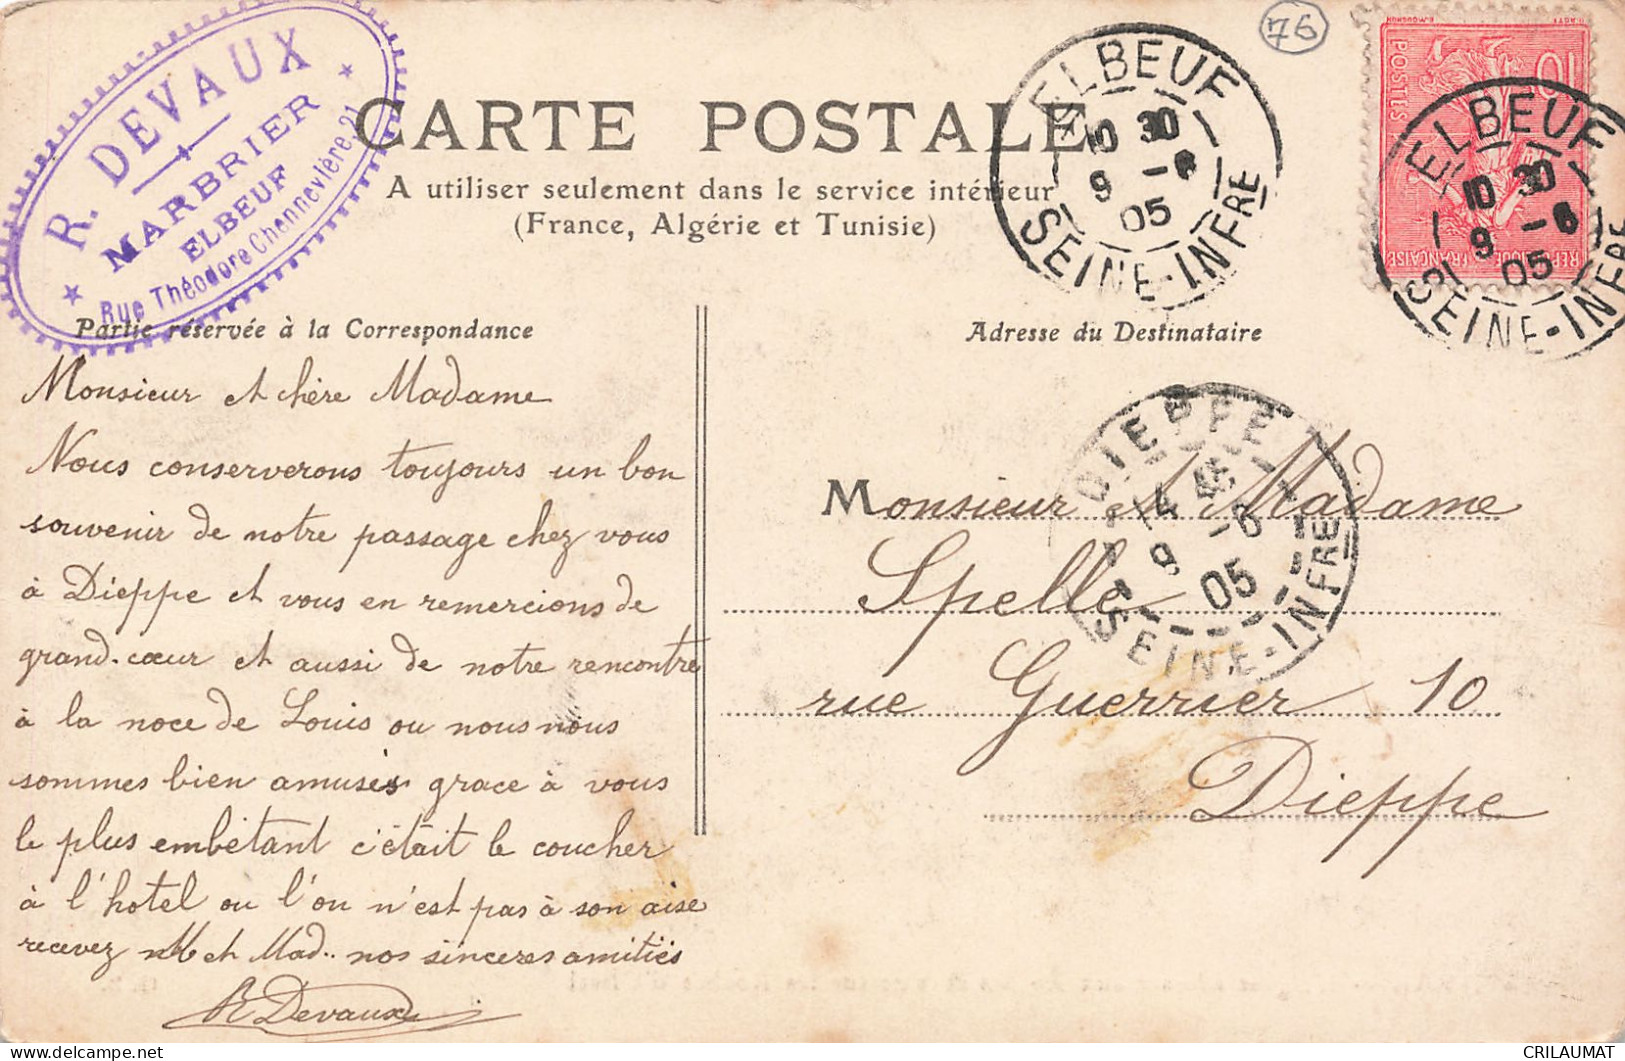 R. DEVAUX
MARBRIER
ELBEUF
Rue Théodore Chennevière 21
76
CARTE POSTALE
A utiliser seulement dans le service intérieur
(France, Algérie et Tunisie)
ELBEUF
10 30
9 -6
05
SEINE-INFRE
10
POSTES
REPUBLIQUE FRANÇAISE
ELBEUF
10 30
9 -6
05
SEINE-INFRE
Partie réservée à la Correspondance
Adresse du Destinataire
Monsieur et chère Madame
Nous conserverons toujours un bon
souvenir de notre passage chez vous
à Dieppe et vous en remercions de
grand-cœur et aussi de notre rencontre
à la noce de Louis ou nous nous
sommes bien amusés grace à vous
le plus embêtant c'était le coucher
à l'hotel ou l'on n'est pas à son aise
recevez M et Mad.. nos sinceres amitiés
R Devaux
DIEPPE
14 45
9 -6
05
SEINE-INFRE
Monsieur et Madame
Spelle
rue Guerrier 10
Dieppe
CRILAUMAT